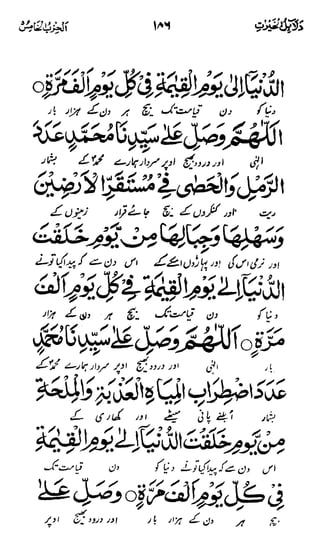 دلائل الخیرات ۱۸۶ الحزب الخامس
الدُّنْيَآ اِلٰى يَوْمِ الْقِيٰمَةِ فِيْ كُلِّ يَوْمٍ اَلْفَ مَرَّةٍ ○
دنیا کو دن قیامت تک بیچ ہر دن کے ہزار بار
اَللّٰهُمَّ وَصَلِّ عَلٰى سَيِّدِنَا مُحَمَّدٍ عَدَدَ
الٰہی اور درود بھیج اوپر سردار ہمارے محمدؐ کے بشمار
الرَّمْلِ وَالْحَصٰى فِيْ مُسْتَقَرِّ الْاَرَضِيْنَ
ریت اور کنکروں کے بیچ جائے قرار زمینوں کے
وَسَهْلِهَا وَجِبَالِهَا مِنْ يَّوْمِ خَلَقْتَ
اور نرمی اس کی اور پہاڑوں اسکے کے اس دن سے کہ پیدا کیا تونے
الدُّنْيَآ اِلٰى يَوْمِ الْقِيٰمَةِ فِيْ كُلِّ يَوْمٍ اَلْفَ
دنیا کو دن قیامت تک بیچ ہر دن کے ہزار
مَرَّةٍ ○ اَللّٰهُمَّ وَصَلِّ عَلٰى سَيِّدِنَا مُحَمَّدٍ
بار الٰہی اور درود بھیج اوپر سردار ہمارے محمدؐ کے
عَدَدَ اضْطِرَابِ الْمِيَاهِ الْعَذْبَةِ وَالْمِلْحَةِ
بشمار ابلنے پانی میٹھے اور کھاری کے
مِنْ يَّوْمِ خَلَقْتَ الدُّنْيَآ اِلٰى يَوْمِ الْقِيٰمَةِ
اس دن سے کہ پیدا کیا تونے دنیا کو دن قیامت تک
فِيْ كُلِّ يَوْمٍ اَلْفَ مَرَّةٍ ○ وَصَلِّ عَلٰى
بیچ ہر دن کے ہزار بار اور درود بھیج اوپر